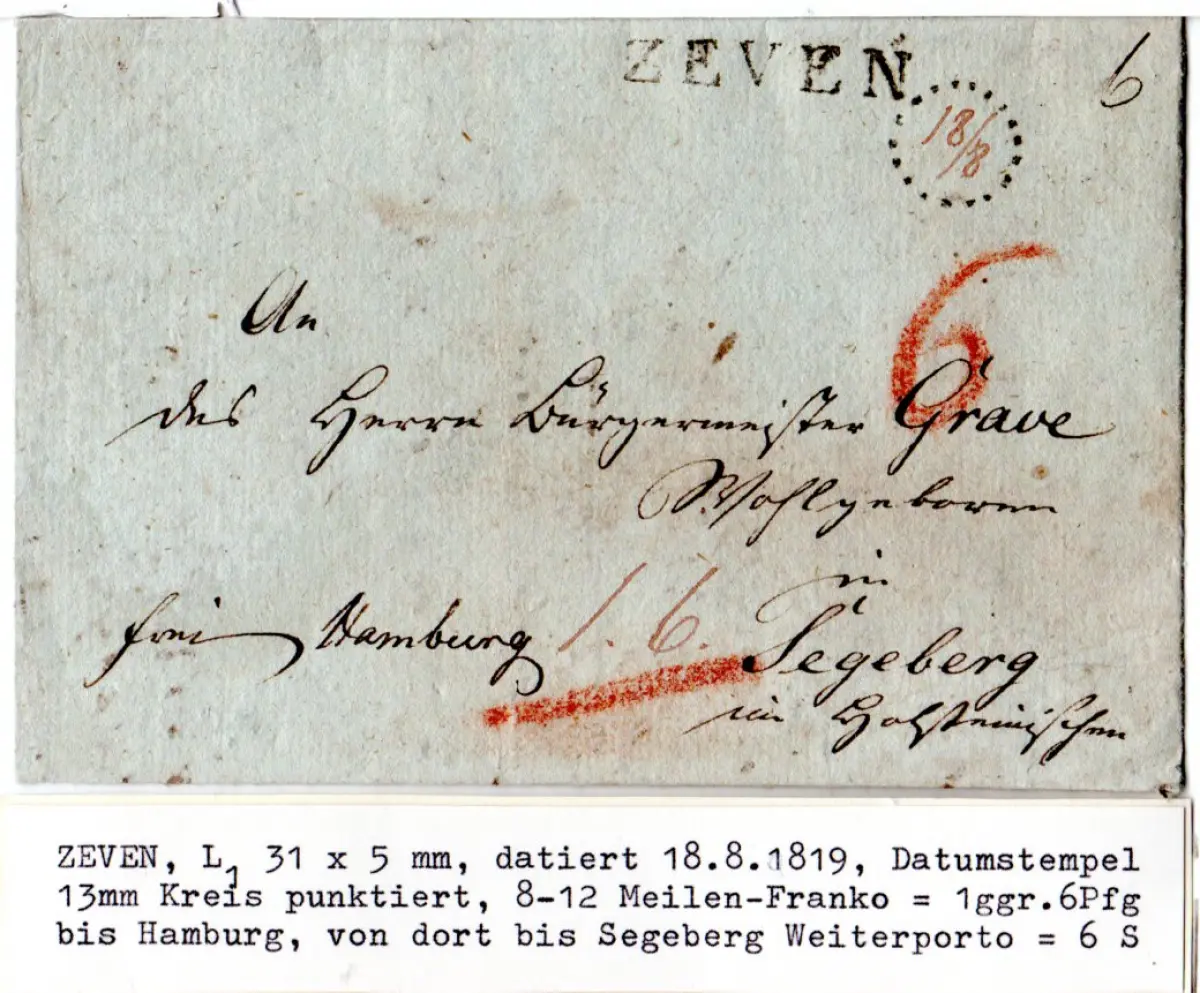 ZEVEN
6
18/8
6
An
des Herrn Bürgermeister Grave
Wohlgeboren
in
frei Hamburg 1.6. Segeberg
im Holsteinischen
ZEVEN, L1 31 x 5 mm, datiert 18.8.1819, Datumstempel
13mm Kreis punktiert, 8-12 Meilen-Franko = 1ggr.6Pfg
bis Hamburg, von dort bis Segeberg Weiterporto = 6 S